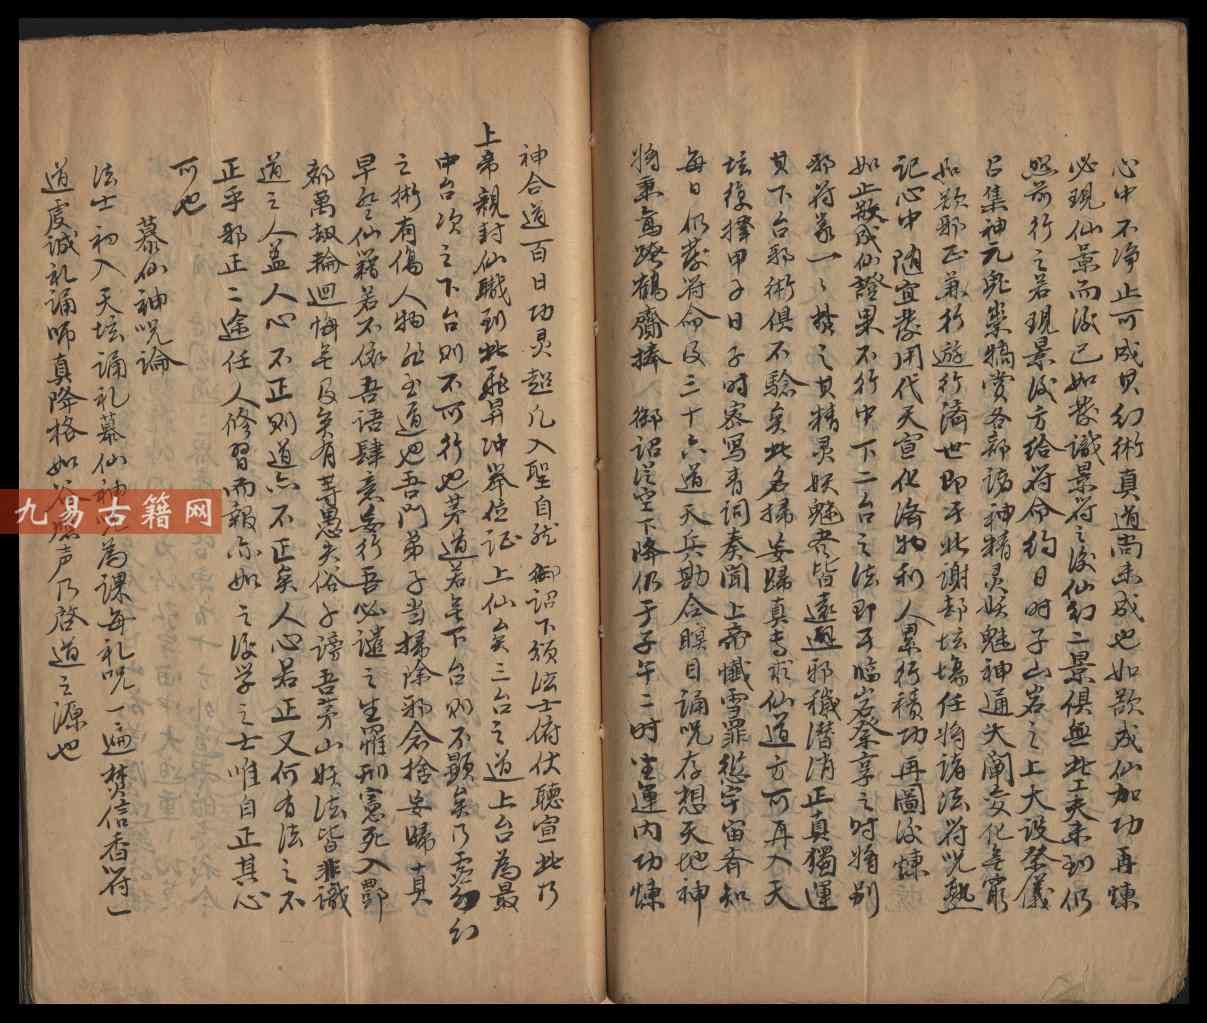 心中不净止可成其幻術真道尚未成也如欲成仙加功再煉
必現仙景而後已如發識景符之後仙幻二景俱無此工夫未到仍
照前行之若現景後方給符命約日時子山岩之上大設祭儀
召集神元鬼祟犒賞各部諸神精灵妖魅神通大闡变化無窮
如欲邪正兼行遊行濟世即于此謝部坛塲任將諸法符咒熟
記心中随宜發用代天宣化濟物利人累行積功再圖後煉
如止欲成仙證果不行中下二台之法即于臨岩祭享之时將别
邪符篆一一焚之其精灵妖魅尽皆遠遁邪穢潜消正真獨運
其下台邪術俱不騐矣此名掃妄歸真专求仙道方可再入天
坛復擇甲子日子时寨写青词奏聞上帝懺雪罪愆宇宙齐知
每日仍發符命及三十六道天兵勘合瞑目誦咒存想天地神
将乘鸾跨鶴齋捧 御詔從空下降仍于子午二时坐運内功煉
神合道百日功灵超凡入聖自然 御詔下頒法士俯伏聽宣此乃
上帝親封仙職到此飛昇冲举位证上仙矣三台之道上台為最
中台次之下台則不可行也茅道若無下台則不顯矣乃虚幻
之術有傷人物非至道也吾門弟子当掃除邪念捨妄歸真
早登仙籍若不依吾语肆意妄行吾必譴之生罹刑憲死入酆
都萬劫輪迴悔無及矣有等愚夫俗子謗吾茅山妖法皆非識
道之人盖人心不正則道亦不正矣人心若正又何有法之不
正乎邪正二途任人修習而報亦如之後学之士唯自正其心
可也
慕仙神咒論
法士初入天坛誦礼慕仙神咒為課每礼咒一遍焚信香符一
道虔诚礼誦师真降格如谷應声乃啓道之源也
九易古籍网